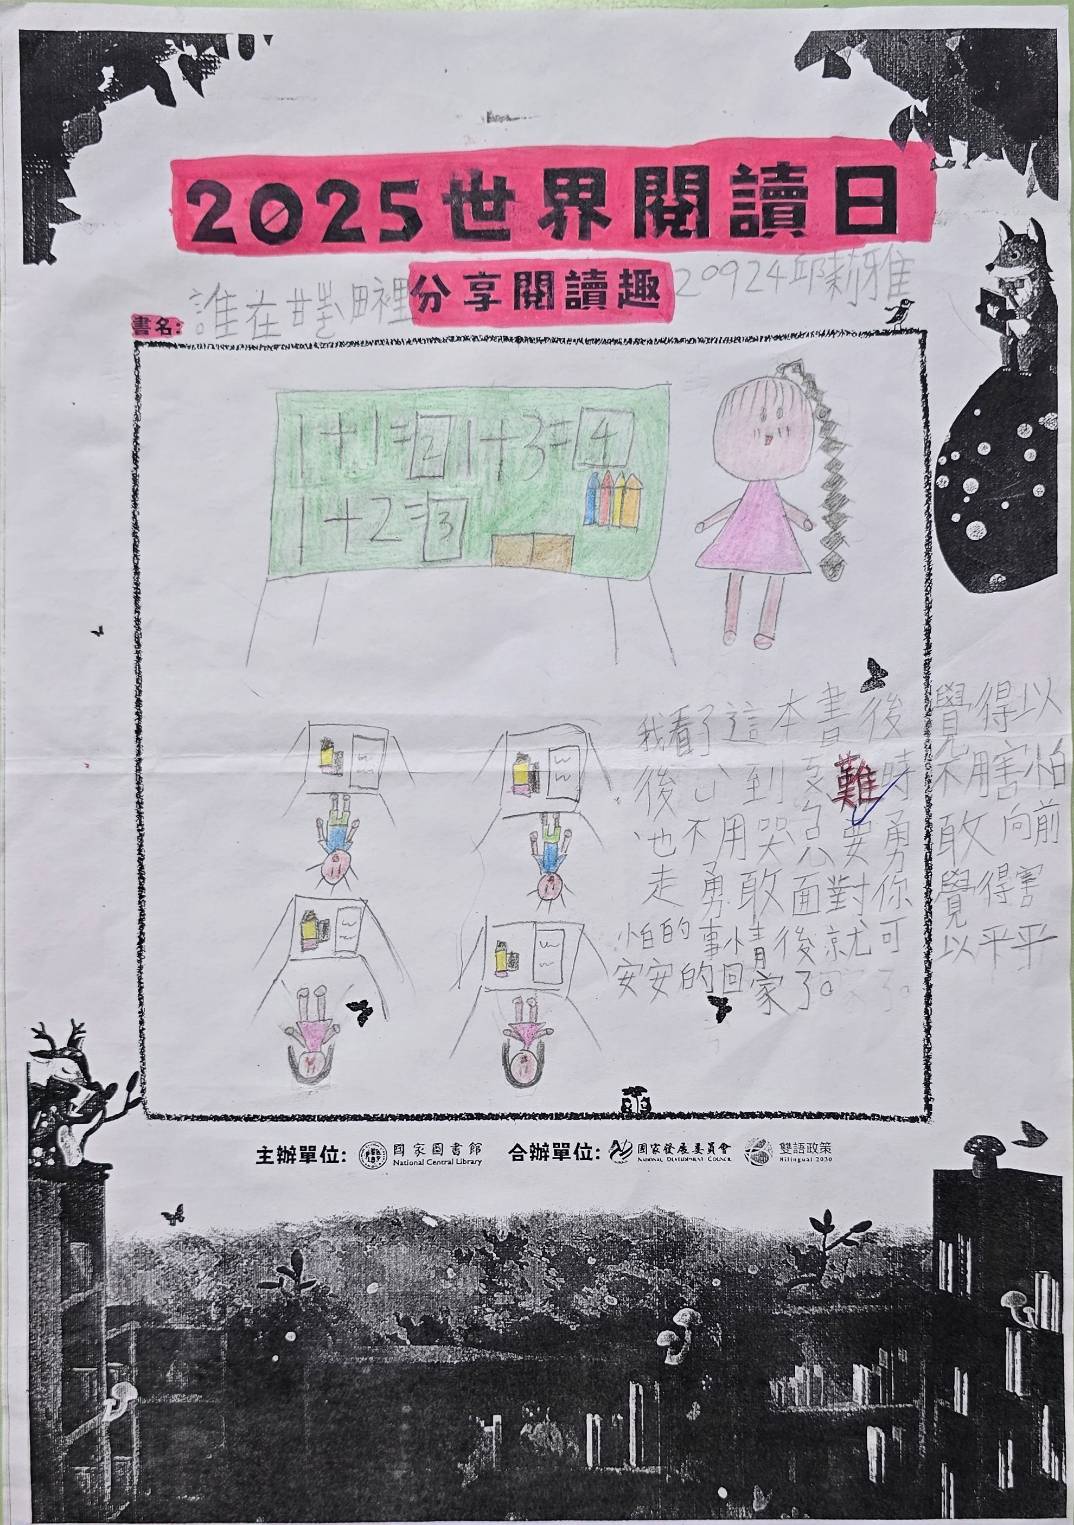 2025世界閱讀日
分享閱讀趣
20924邱莉雅
書名:
誰在 裡
1+1=2 1+3=4
1+2=3
我看了這本書後覺得以
後 到 難時不用害怕
、也不用哭只要勇敢向前
走勇敢面對你覺得害
怕的事情後就可以平平
安安的回家了。
主辦單位: 國家圖書館 National Central Library 合辦單位: 國家發展委員會 NATIONAL DEVELOPMENT COUNCIL 雙語政策 Bilingual 2030